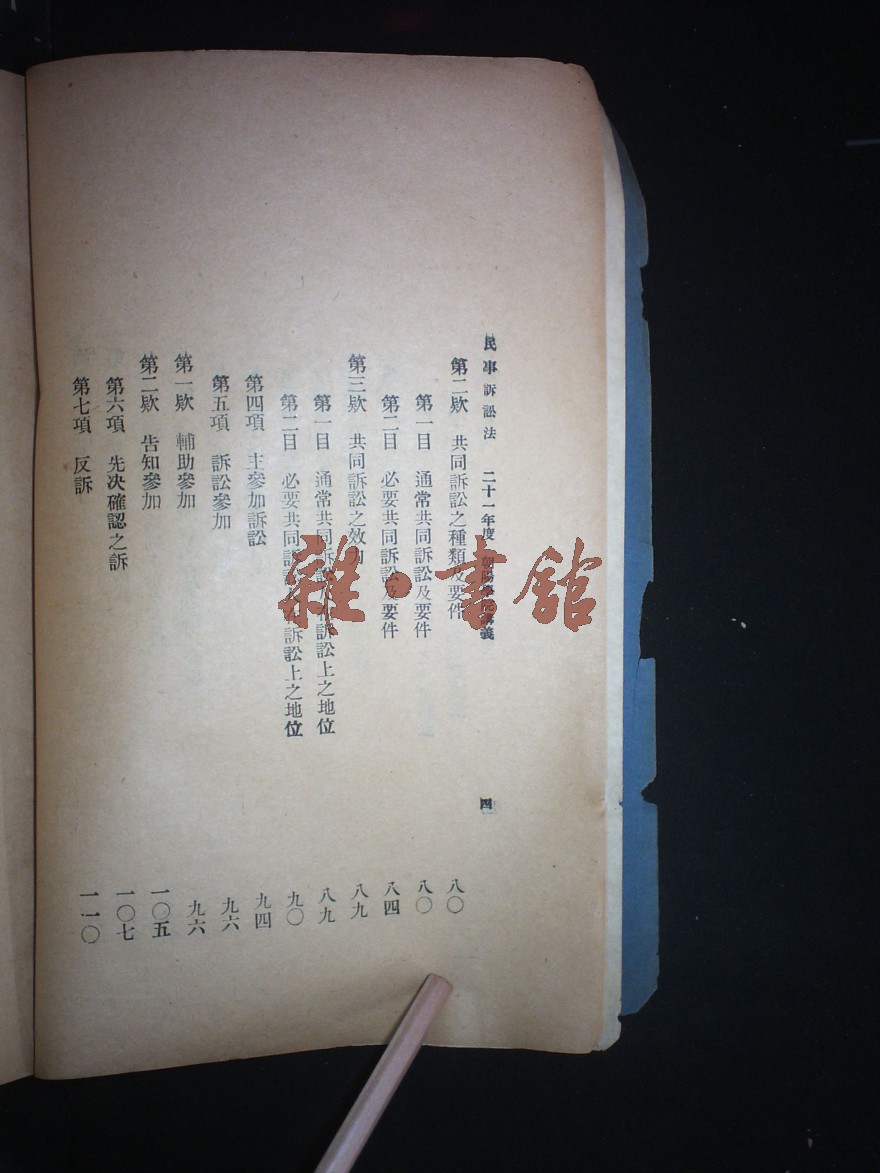 民事訴訟法 二十一年度 朝陽學院講義 四
第二欵 共同訴訟之種類及要件 八〇
第一目 通常共同訴訟及要件 八〇
第二目 必要共同訴訟及要件 八四
第三欵 共同訴訟之效力 八九
第一目 通常共同訴訟人在訴訟上之地位 八九
第二目 必要共同訴訟人在訴訟上之地位 九〇
第四項 主參加訴訟 九四
第五項 訴訟參加 九六
第一欵 輔助參加 九六
第二欵 告知參加 一〇五
第六項 先決確認之訴 一〇七
第七項 反訴 一一〇
雜·書館